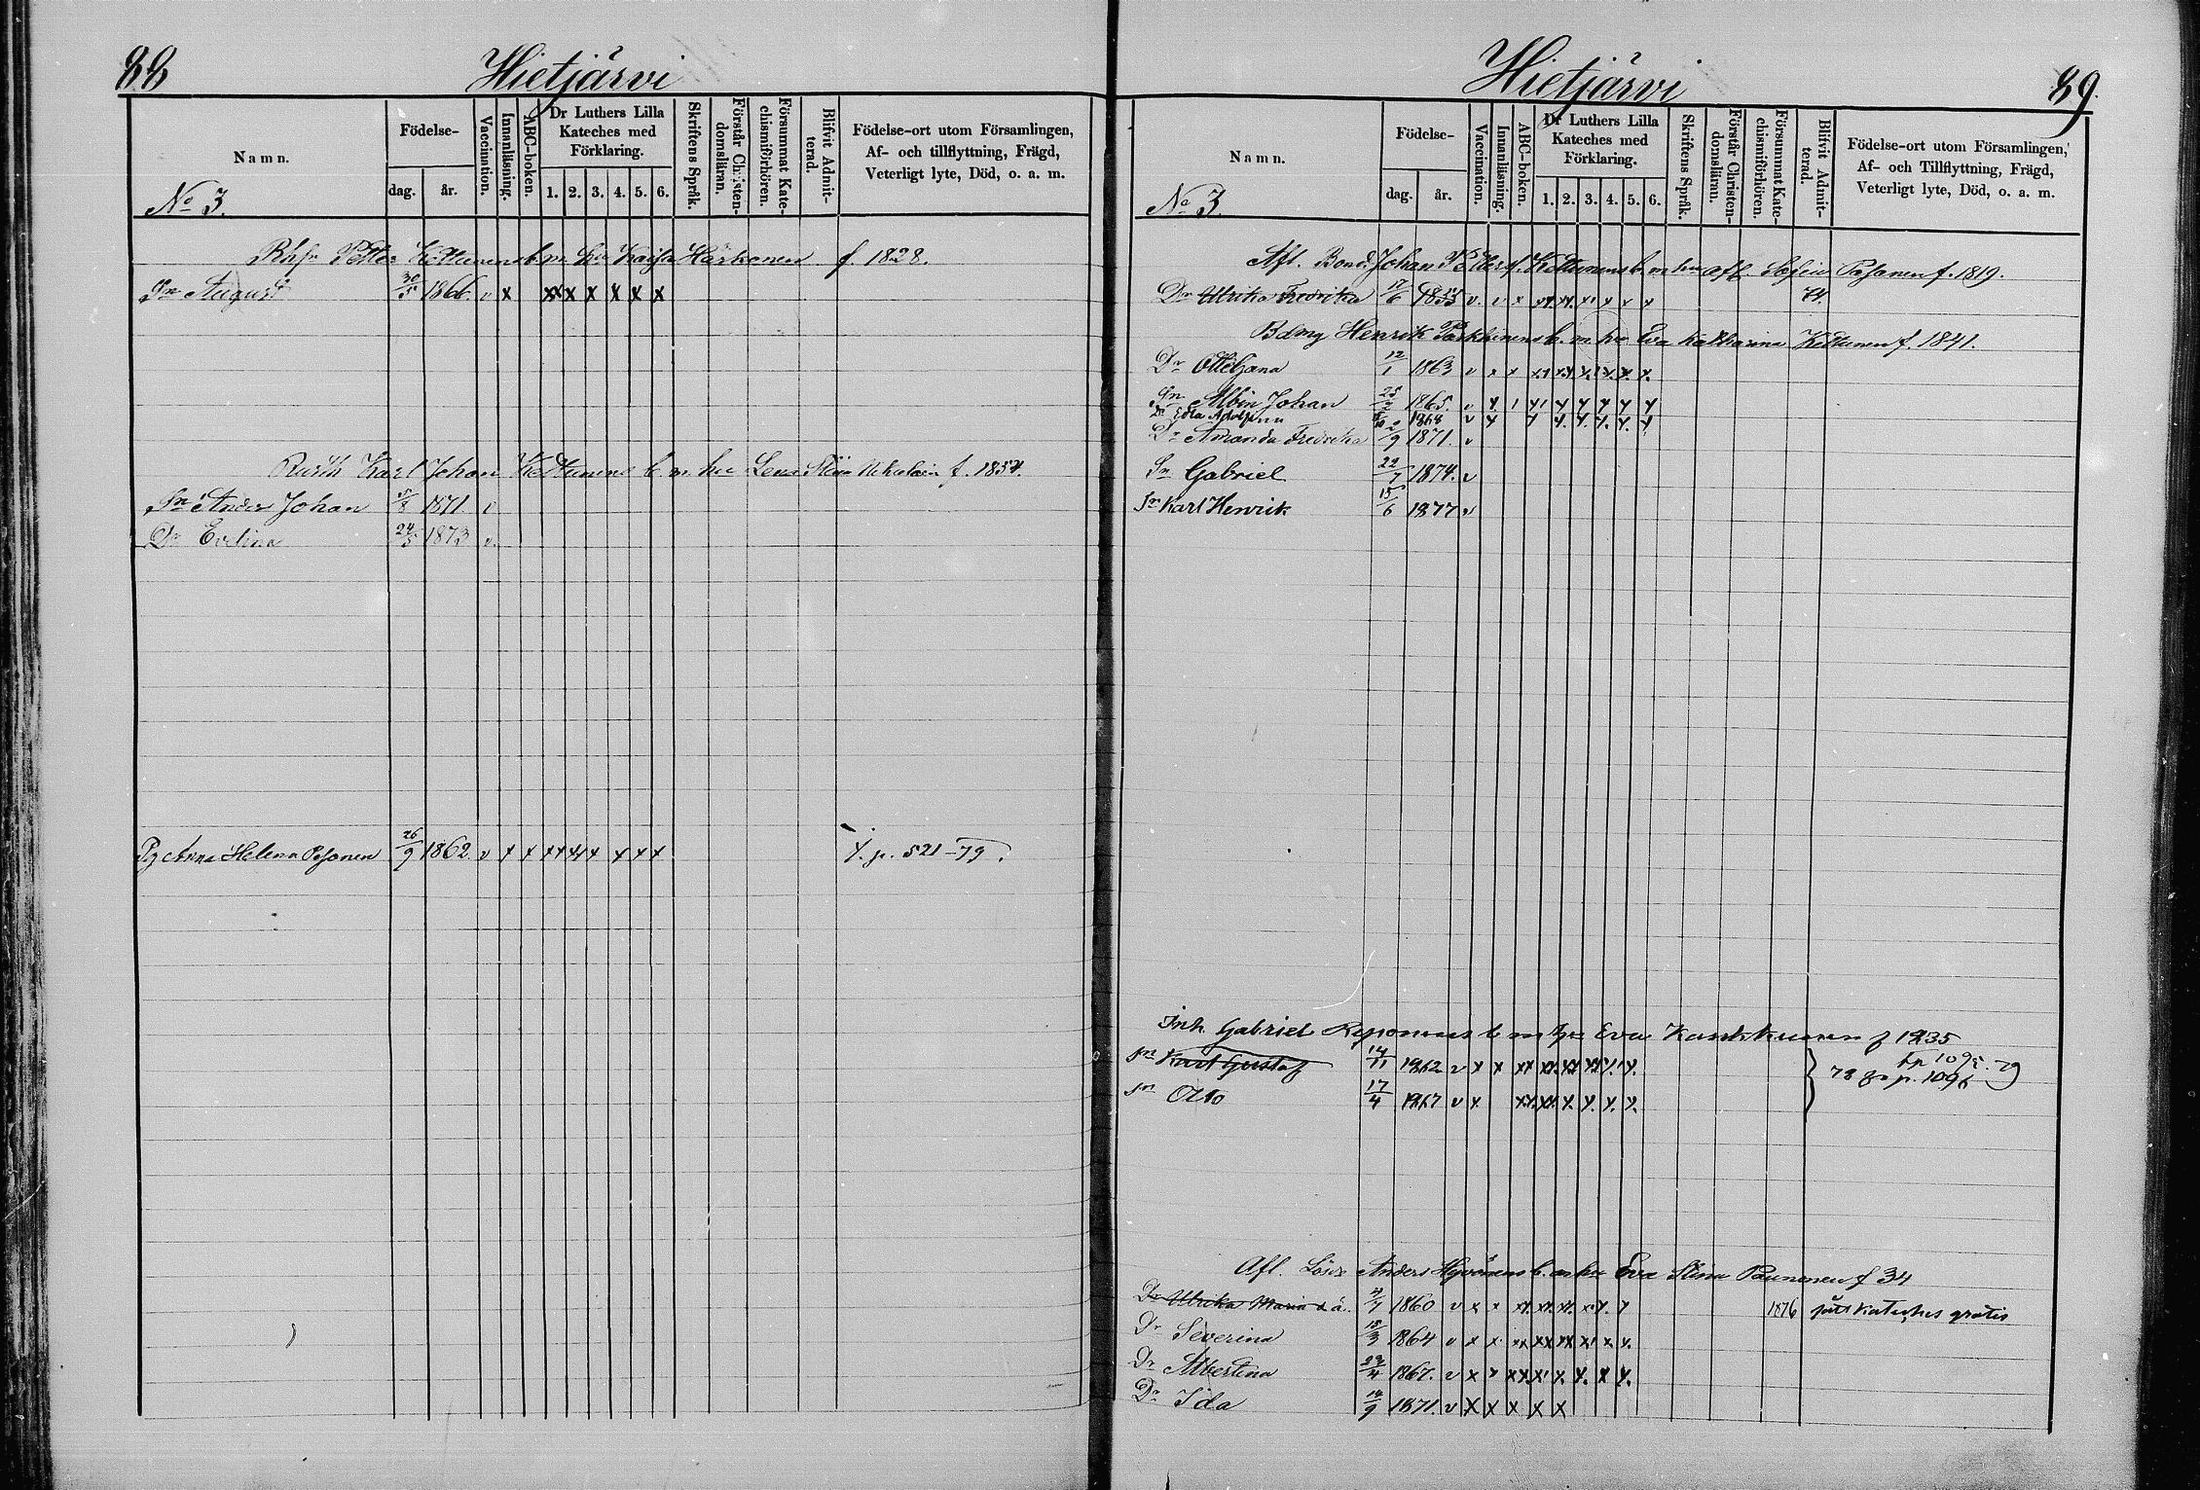 88
Hietjärvi
Namn.
Födelse-
dag.
år.
Vaccination.
Innanläsning.
ABC-boken.
Dr Luthers Lilla Kateches med Förklaring.
1. 2. 3. 4. 5. 6.
Skriftens Språk.
Förstår Christendomsläran.
Försummat Katechismiförhören.
Blifvit Admitterad.
Födelse-ort utom Församlingen, Af- och tillflyttning, Frägd, Veterligt lyte, Död, o. a. m.
No 3.
Petter Kettunens b. m. hu Kaisa Härkönen f. 1828.
Sn August 30/5 1866. v x xx x x x x x
Karl Johan Kettunens b. m. hu Lena Stina Nikolain f. 1834.
Sn Anders Johan 1871. v
Dr Evelina 24/3 1873 v.
Pg Anna Helena Pesonen 26/9 1862. v x x xx xx x x x x p. 521-79.
Hietjärvi
89.
Namn.
Födelse-
dag.
år.
Vaccination.
Innanläsning.
ABC-boken.
Dr Luthers Lilla Kateches med Förklaring.
1. 2. 3. 4. 5. 6.
Skriftens Språk.
Förstår Christendomsläran.
Försummat Katechismiförhören.
Blifvit Admitterad.
Födelse-ort utom Församlingen, Af- och Tillflyttning, Frägd, Veterligt lyte, Död, o. a. m.
No 3.
Afl. Bond. Johan Petter Kettunens b. m. hu afl. Pesonen f. 1819.
Dr Ulrika Fredrika 17/6 v. v x xx xx. x x x x 74.
Henrik b. m. hu Eva Katharina Kettunen f. 1841.
Dr Ottiljana 12/1 1863 v x x
Sn Albin Johan 25/2 1865. v
Dr Edla Adolfina 1868 v
Dr Amanda Fredrika 2/9 1871. v
Sn Gabriel 22/7 1874. v
Sn Karl Henrik 15/6 1877 v
Inh. Gabriel Reponens b m hu Eva f 1835
Sn Karl Gustaf 14/11 1862 v x x xx 1095. 79
78 p. 1096
Sn Otto 17/4 1867 v x
Afl. Anders Hyvönens b. m hu Eva Stina Paunonen f 34
Dr Ulrika Maria d. ä. 4/7 1860 v x x 1876 fått kateches gratis
Dr Severina 18/3 1864 v x x
Dr Albertina 22/4 1867. v x x
Dr Ida 14/9 1871. v x x x x x